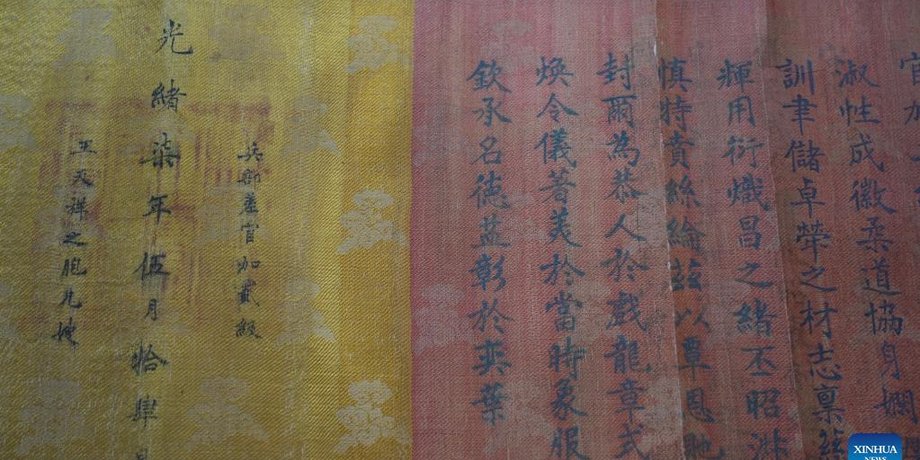 淑性成徽柔道協身嫻
訓聿儲卓犖之材志稟茲
輝用衍熾昌之緒丕昭
慎特賁絲綸茲以覃恩貤
封爾為恭人於戲龍章式
煥令儀著美於當時象服
欽承名德益彰於奕葉
兵部差官加貳級
光緒柒年伍月拾肆
王天祥之胞兄嫂
XINHUA
NEWS